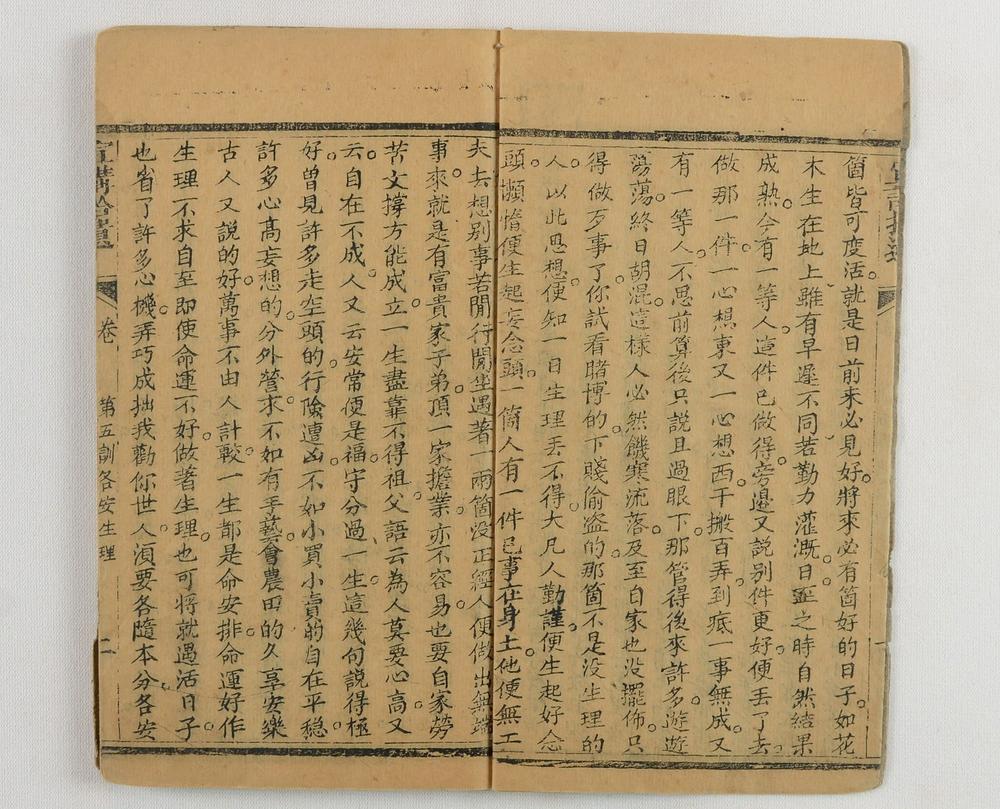 箇皆可度活就是日前未必見好將來必有箇好的日子如花
木生在地上雖有早遲不同若勤力灌漑日至之時自然結果
成熟今有一等人這件已做得旁邊又說別件更好便丟了去
做那一件一心想東又一心想西千搬百弄到底一事無成又
有一等人不思前算後只說且過眼下那管得後來許多遊遊
蕩蕩終日胡混這樣人必然饑寒流落及至自家也沒擺佈只
得做歹事了你試看賭博的下賤偷盗的那箇不是沒生理的
人以此思想便知一日生理丟不得大凡人勤謹便生起好念
頭懶惰便生起妄念頭一箇人有一件已事在身上他便無工
夫去想別事若閒行閒坐遇著一兩箇没正經人便做出無端
事來就是有富貴家子弟頂一家擔業亦不容易也要自家勞
苦支撐方能成立一生盡靠不得祖父語云為人莫要心高又
云自在不成人又云安常便是福守分過一生這幾句說得極
好曾見許多走空頭的行險遭凶不如小買小賣的自在平穩
許多心高妄想的分外營求不如有手藝會農田的久享安樂
古人又說的好萬事不由人計較一生都是命安排命運好作
生理不求自至即使命運不好做著生理也可將就過活日子
也省了許多心機弄巧成拙我勸你世人須要各隨本分各安
宣講拾遺 卷 第五訓各安生理 二